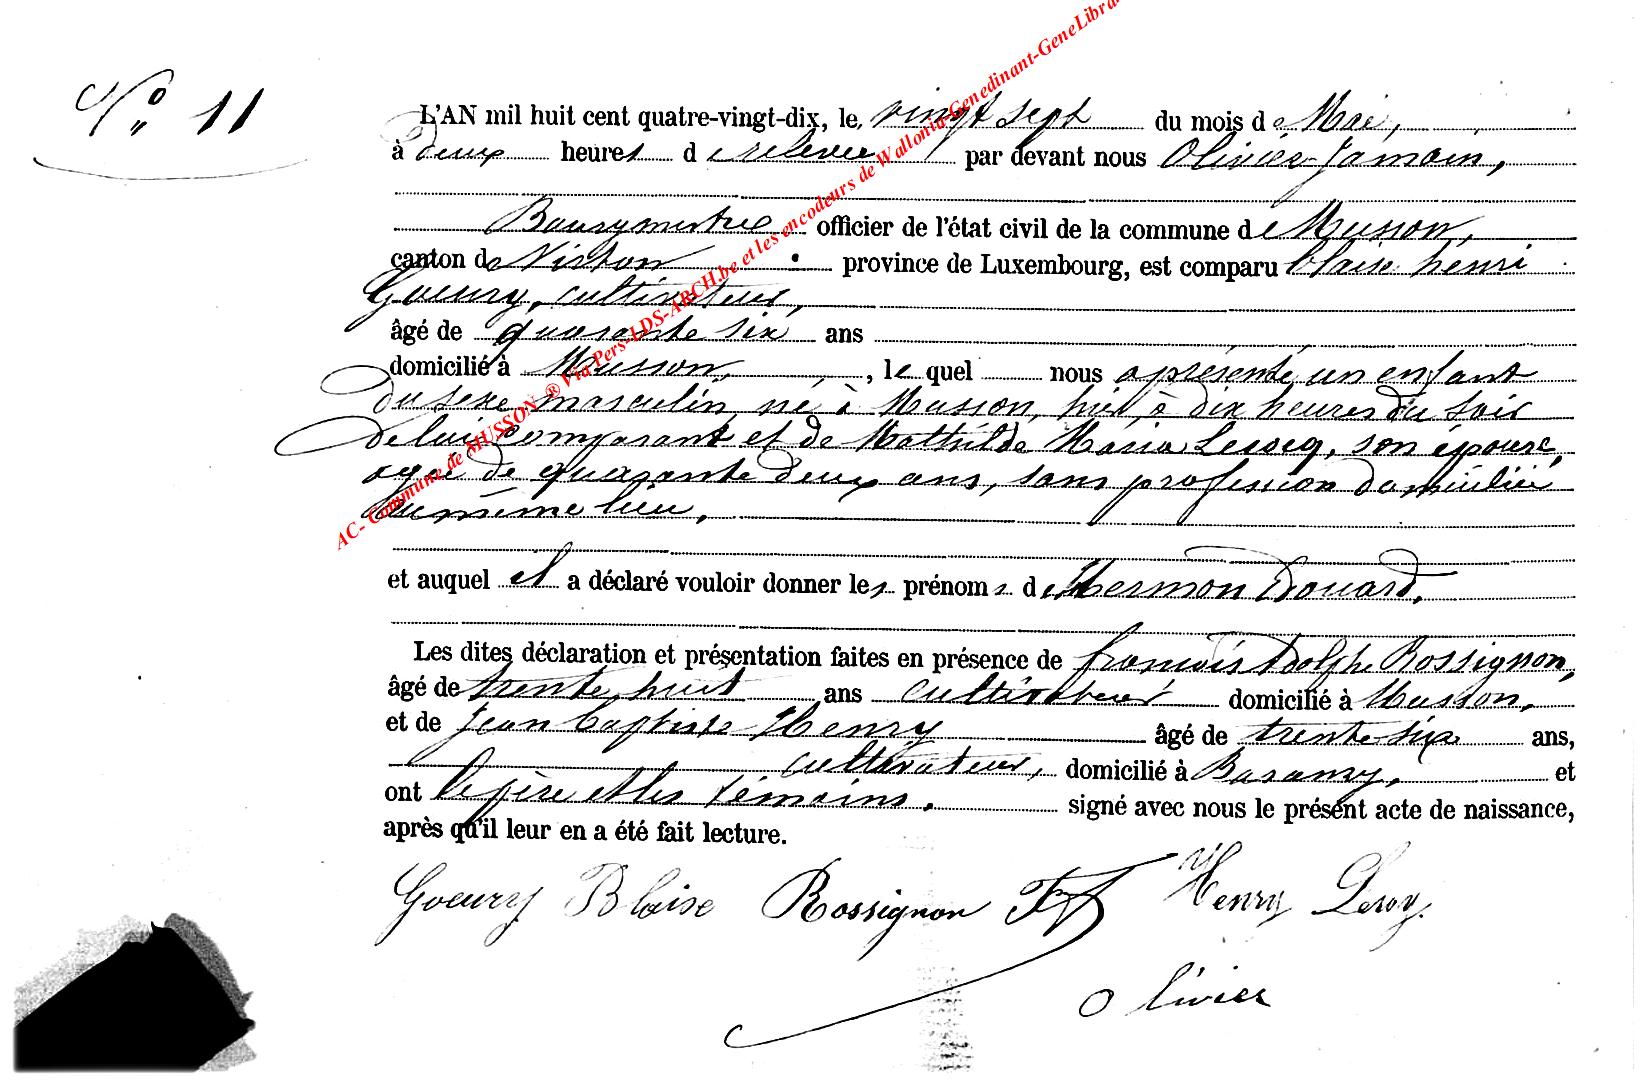 N° 11
L'AN mil huit cent quatre-vingt-dix, le vingt sept du mois de Mai,
à deux heures de relevée par devant nous Olivier Jamoin,
Bourgmestre officier de l'état civil de la commune de Musson,
canton de Virton province de Luxembourg, est comparu blaise henri
Goeury, cultivateur,
âgé de quarante six ans
domicilié à Musson, , le quel nous a présenté un enfant
du sexe masculin, né à Musson, hier, à dix heures du soir
de lui comparant et de Mathilde Maria Lecocq, son épouse,
agée de quarante deux ans, sans profession domiciliée
au même lieu,
et auquel il a déclaré vouloir donner les prénoms de Hermon Edouard,
Les dites déclaration et présentation faites en présence de francois Adolphe Rossignon,
âgé de trente huit ans cultivateur domicilié à Musson,
et de Jean baptiste Henry âgé de trente six ans,
cultivateur, domicilié à Baranzy, et
ont le père et les témoins, signé avec nous le présent acte de naissance,
après qu'il leur en a été fait lecture.
Goeury Blaise Rossignon Henry
Olivier
AC - Commune de MUSSON ® Via Pers-LDS-ARCH.be et les encodeurs de Wallonia-Genedinant-GeneLibra